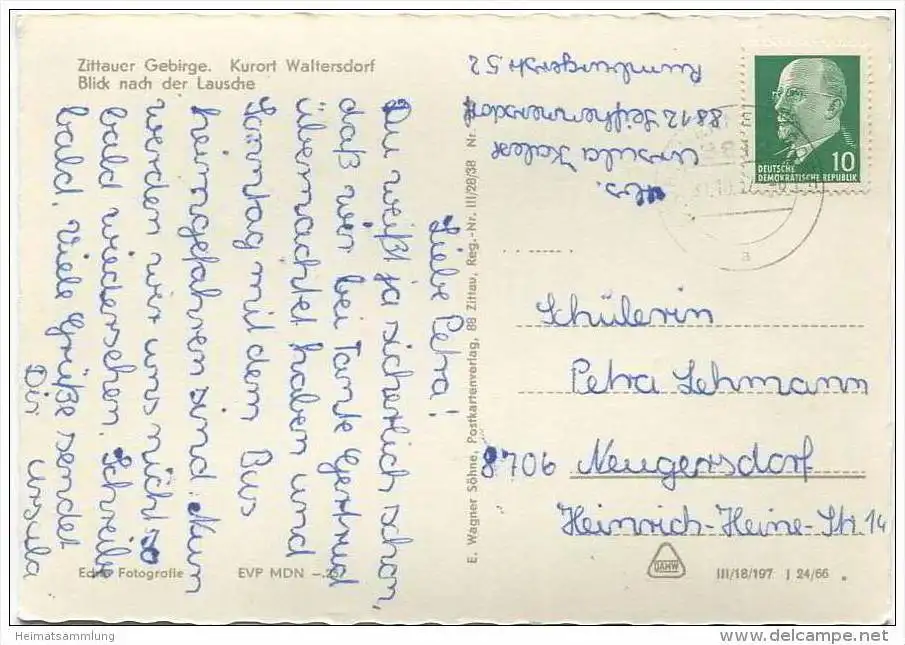 Zittauer Gebirge. Kurort Waltersdorf
Blick nach der Lausche
Liebe Petra!
Du weißt ja sicherlich schon,
daß wir bei Tante Gertrud
übernachtet haben und
Sonntag mit dem Bus
heimgefahren sind. Nun
werden wir uns nicht so
bald wiedersehen. Schreib
bald. Viele Grüße sendet
Dir Ursula
Echte Fotografie
EVP MDN
E. Wagner Söhne, Postkartenverlag, 88 Zittau, Reg.-Nr. III/28/38 Nr
Abs.
Ursula
8812 Seifhennersdorf
Rumburgerstr. 52
10
DEUTSCHE
DEMOKRATISCHE REPUBLIK
Schülerin
Petra Lehmann
8706 Neugersdorf
Heinrich-Heine-Str. 14
III/18/197 J 24/66
Heimatsammlung
www.delcampe.net